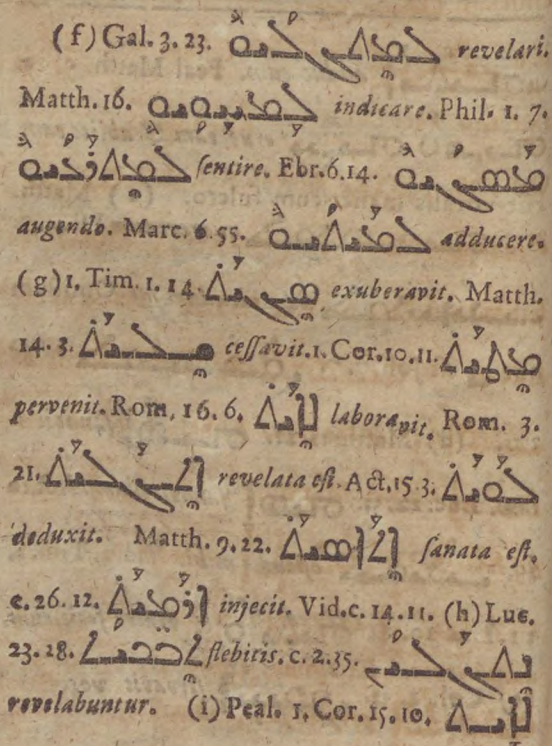 (f) Gal. 3. 23. ܠܡܬܓܠܝܘ revelari.
Matth. 16. ܠܡܚܘܝܘ indicare. Phil. 1. 7.
ܠܡܬܪܥܝܘ sentire. Ebr. 6. 14. ܡܣܓܝܘ
augendo. Marc. 6. 55. ܠܡܝܬܝܘ adducere.
(g) 1. Tim. 1. 14. ܣܓܝܬ exuberavit. Matth.
14. 3. ܫܠܝܬ cessavit. 1. Cor. 10. 11. ܡܛܝܬ
pervenit. Rom. 16. 6. ܠܐܝܬ laboravit. Rom. 3.
21. ܐܬܓܠܝܬ revelata est. Act. 15. 3. ܠܘܝܬ
deduxit. Matth. 9. 22. ܐܬܐܣܝܬ sanata est.
c. 26. 12. ܐܪܡܝܬ injecit. Vid. c. 14. 11. (h) Luc.
23. 28. flebitis. c. 2. 35.
revelabuntur. (i) Peal. 1. Cor. 15. 10. ܠܐܝܬ